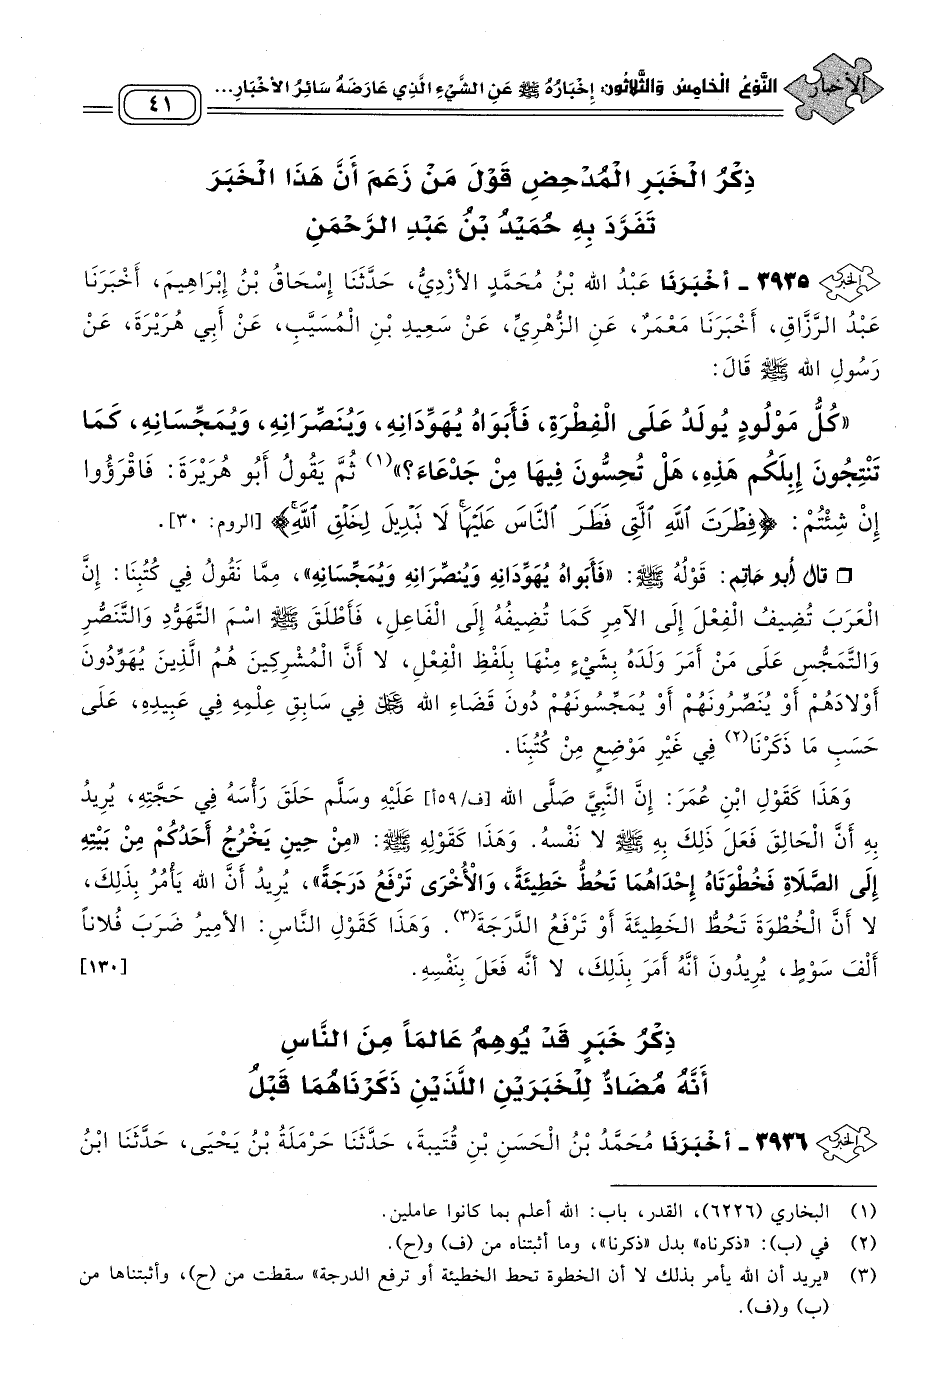 الأخبار
النَّوْعُ الْخَامِسُ وَالثَّلاثُونَ: إِخْبَارُهُ ﷺ عَنِ الشَّيْءِ الَّذِي عَارَضَهُ سَائِرُ الأَخْبَارِ...
٤١
ذِكْرُ الْخَبَرِ الْمُدْحِضِ قَوْلَ مَنْ زَعَمَ أَنَّ هَذَا الْخَبَرَ
تَفَرَّدَ بِهِ حُمَيْدُ بْنُ عَبْدِ الرَّحْمَنِ
٣٩٣٥ ـ أَخْبَرَنَا عَبْدُ الله بْنُ مُحَمَّدٍ الأَزْدِيُّ، حَدَّثَنَا إِسْحَاقُ بْنُ إِبْرَاهِيمَ، أَخْبَرَنَا
عَبْدُ الرَّزَّاقِ، أَخْبَرَنَا مَعْمَرٌ، عَنِ الزُّهْرِيِّ، عَنْ سَعِيدِ بْنِ الْمُسَيَّبِ، عَنْ أَبِي هُرَيْرَةَ، عَنْ
رَسُولِ الله ﷺ قَالَ:
«كُلُّ مَوْلُودٍ يُولَدُ عَلَى الْفِطْرَةِ، فَأَبَوَاهُ يُهَوِّدَانِهِ، وَيُنَصِّرَانِهِ، وَيُمَجِّسَانِهِ، كَمَا
تَنْتِجُونَ إِبِلَكُم هَذِهِ، هَلْ تُحِسُّونَ فِيهَا مِنْ جَدْعَاءَ؟»(١) ثُمَّ يَقُولُ أَبُو هُرَيْرَةَ: فَاقْرَؤُوا
إِنْ شِئْتُمْ: ﴿فِطْرَتَ ٱللَّهِ ٱلَّتِى فَطَرَ ٱلنَّاسَ عَلَيْهَا لَا نَبْدِيلَ لِخَلْقِ ٱللَّهِ﴾ [الروم: ٣٠].
❑ قال أبو حاتم: قَوْلُهُ ﷺ: «فَأَبَوَاهُ يُهَوِّدَانِهِ وَيُنَصِّرَانِهِ وَيُمَجِّسَانِهِ»، مِمَّا نَقُولُ فِي كُتُبِنَا: إِنَّ
الْعَرَبَ تُضِيفُ الْفِعْلَ إِلَى الآمِرِ كَمَا تُضِيفُهُ إِلَى الْفَاعِلِ، فَأَطْلَقَ ﷺ اسْمَ التَّهَوُّدِ وَالتَّنَصُّرِ
وَالتَّمَجُّسِ عَلَى مَنْ أَمَرَ وَلَدَهُ بِشَيْءٍ مِنْهَا بِلَفْظِ الْفِعْلِ، لا أَنَّ الْمُشْرِكِينَ هُمُ الَّذِينَ يُهَوِّدُونَ
أَوْلادَهُمْ أَوْ يُنَصِّرُونَهُمْ أَوْ يُمَجِّسُونَهُمْ دُونَ قَضَاءِ الله ﷻ فِي سَابِقِ عِلْمِهِ فِي عَبِيدِهِ، عَلَى
حَسَبِ مَا ذَكَرْنَا(٢) فِي غَيْرِ مَوْضِعٍ مِنْ كُتُبِنَا.
وَهَذَا كَقَوْلِ ابْنِ عُمَرَ: إِنَّ النَّبِيَّ صَلَّى الله [ف/٥٩أ] عَلَيْهِ وَسَلَّم حَلَقَ رَأْسَهُ فِي حَجَّتِهِ، يُرِيدُ
بِهِ أَنَّ الْحَالِقَ فَعَلَ ذَلِكَ بِهِ ﷺ لا نَفْسُهُ. وَهَذَا كَقَوْلِهِ ﷺ: «مِنْ حِينِ يَخْرُجُ أَحَدُكُمْ مِنْ بَيْتِهِ
إِلَى الصَّلاةِ فَخُطْوَتَاهُ إِحْدَاهُمَا تَحُطُّ خَطِيئَةً، وَالأُخْرَى تَرْفَعُ دَرَجَةً»، يُرِيدُ أَنَّ الله يَأْمُرُ بِذَلِكَ،
لا أَنَّ الْخُطْوَةَ تَحُطُّ الْخَطِيئَةَ أَوْ تَرْفَعُ الدَّرَجَةَ(٣). وَهَذَا كَقَوْلِ النَّاسِ: الأَمِيرُ ضَرَبَ فُلاناً
أَلْفَ سَوْطٍ، يُرِيدُونَ أَنَّهُ أَمَرَ بِذَلِكَ، لا أنَّه فَعَلَ بِنَفْسِهِ. [١٣٠]
ذِكْرُ خَبَرٍ قَدْ يُوهِمُ عَالِمَاً مِنَ النَّاسِ
أَنَّهُ مُضَادٌّ لِلْخَبَرَيْنِ اللَّذَيْنِ ذَكَرْنَاهُمَا قَبْلُ
٣٩٣٦ ـ أَخْبَرَنَا مُحَمَّدُ بْنُ الْحَسَنِ بْنِ قُتَيبةَ، حَدَّثَنَا حَرْمَلَةُ بْنُ يَحْيَى، حَدَّثَنَا ابْنُ
(١) البخاري (٦٢٢٦)، القدر، باب: الله أعلم بما كانوا عاملين.
(٢) في (ب): «ذكرناه» بدل «ذكرنا»، وما أثبتناه من (ف) و(ح).
(٣) «يريد أن الله يأمر بذلك لا أن الخطوة تحط الخطيئة أو ترفع الدرجة» سقطت من (ح)، وأثبتناها من
(ب) و(ف).